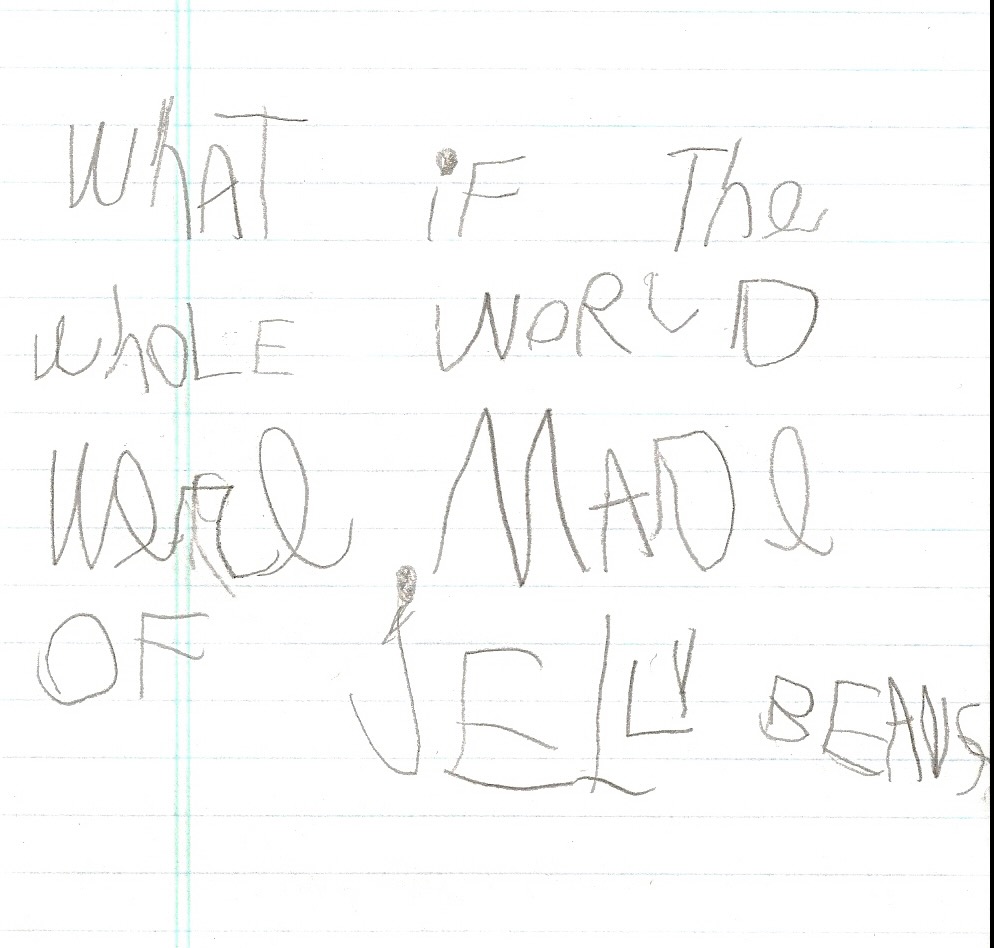 WhAT iF The
WhOLE WORLD
WeRe MADe
OF JELLY BEANS